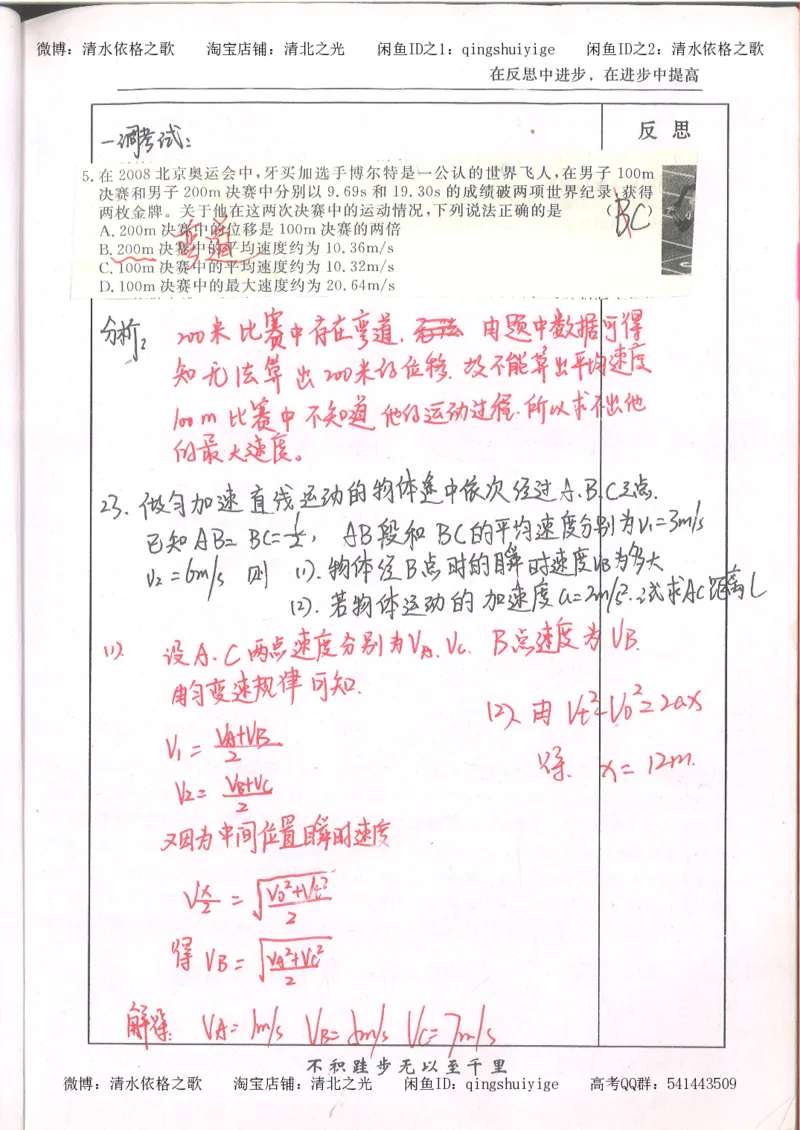 微博：清水依格之歌 淘宝店铺：清北之光 闲鱼ID之1：qingshuiyige 闲鱼ID之2：清水依格之歌
在反思中进步，在进步中提高
反思
一调考试：
5.在2008北京奥运会中,牙买加选手博尔特是一公认的世界飞人,在男子100m
决赛和男子200m决赛中分别以9.69s和19.30s的成绩破两项世界纪录,获得
两枚金牌。关于他在这两次决赛中的运动情况,下列说法正确的是 （BC）
A.200m决赛中的位移是100m决赛的两倍
弯道
B.200m决赛中的平均速度约为10.36m/s
C.100m决赛中的平均速度约为10.32m/s
D.100m决赛中的最大速度约为20.64m/s
分析：
200米比赛中存在弯道. 由题中数据可得
知无法算出200米的位移.故不能算出平均速度
100m比赛中不知道他的运动过程.所以求不出他
的最大速度。
23.做匀加速直线运动的物体途中依次经过A.B.C三点.
已知AB=BC=l/2, AB段和BC的平均速度分别为V₁=3m/s
V₂=6m/s 则 (1).物体经B点时的瞬时速度VB为多大
(2).若物体运动的加速度a=2m/s².试求AC距离L
(1) 设A.C两点速度分别为VA.VC. B点速度为VB.
由匀变速规律可知.
V₁=(VA+VB)/2
V₂=(VB+VC)/2
又因为中间位置瞬时速度
Vx/2=√((V₀²+Vt²)/2)
得VB=√((VA²+VC²)/2)
解得：VA=1m/s VB=5m/s VC=7m/s
(2) 由Vt²-V₀²=2ax
得. x=12m.
不积跬步无以至千里
微博：清水依格之歌 淘宝店铺：清北之光 闲鱼ID：qingshuiyige 高考QQ群：541443509